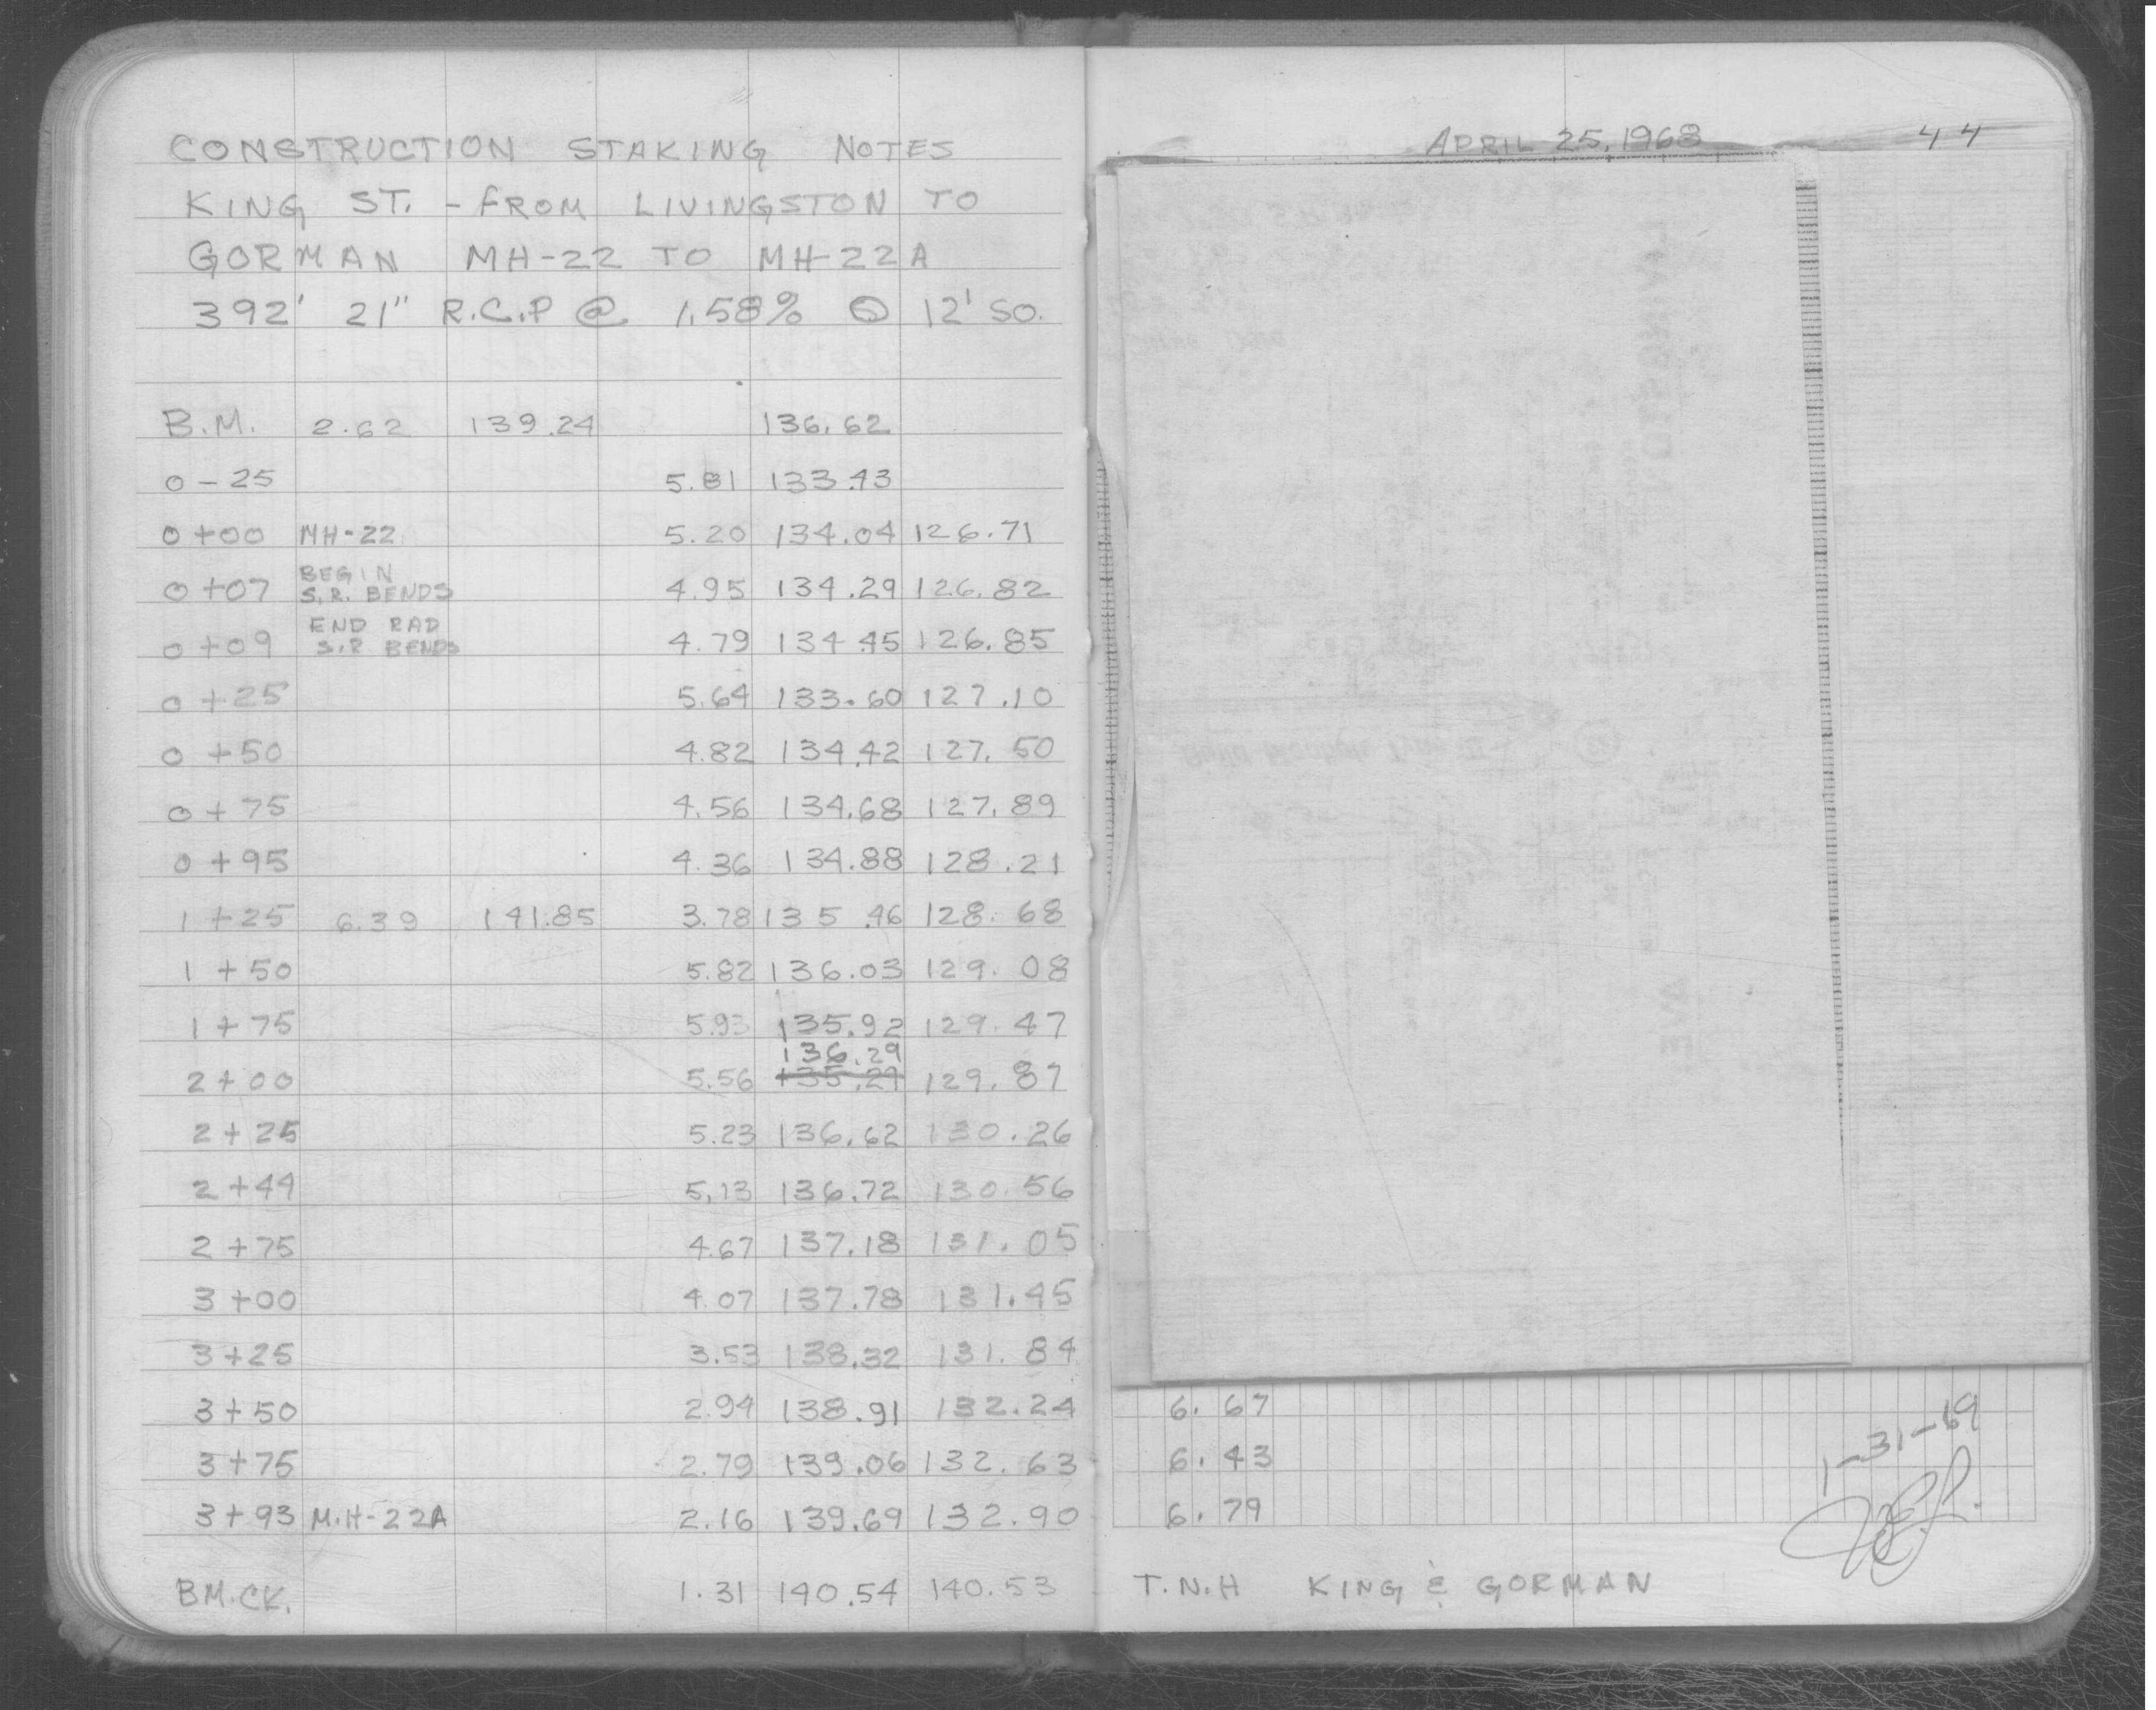 CONSTRUCTION STAKING NOTES
KING ST. - FROM LIVINGSTON TO
GORMAN MH-22 TO MH-22A
392' 21" R.C.P @ 1.58% @ 12' SO.
B.M. 2.62 139.24 136.62
0-25 5.81 133.43
0+00 MH-22 5.20 134.04 126.71
0+07 BEGIN S.R. BENDS 4.95 134.29 126.82
0+09 END RAD S.R BENDS 4.79 134.45 126.85
0+25 5.64 133.60 127.10
0+50 4.82 134.42 127.50
0+75 4.56 134.68 127.89
0+95 4.36 134.88 128.21
1+25 6.39 141.85 3.78 135.46 128.68
1+50 5.82 136.03 129.08
1+75 5.93 135.92 129.47
136.29
2+00 5.56 135.29 129.87
2+25 5.23 136.62 130.26
2+44 5.13 136.72 130.56
2+75 4.67 137.18 131.05
3+00 4.07 137.78 131.45
3+25 3.53 138.32 131.84
3+50 2.94 138.91 132.24
3+75 2.79 139.06 132.63
3+93 M.H-22A 2.16 139.69 132.90
BM.CK. 1.31 140.54 140.53
APRIL 25, 1968 44
6.67
6.43
6.79
1-31-69
T.N.H KING & GORMAN